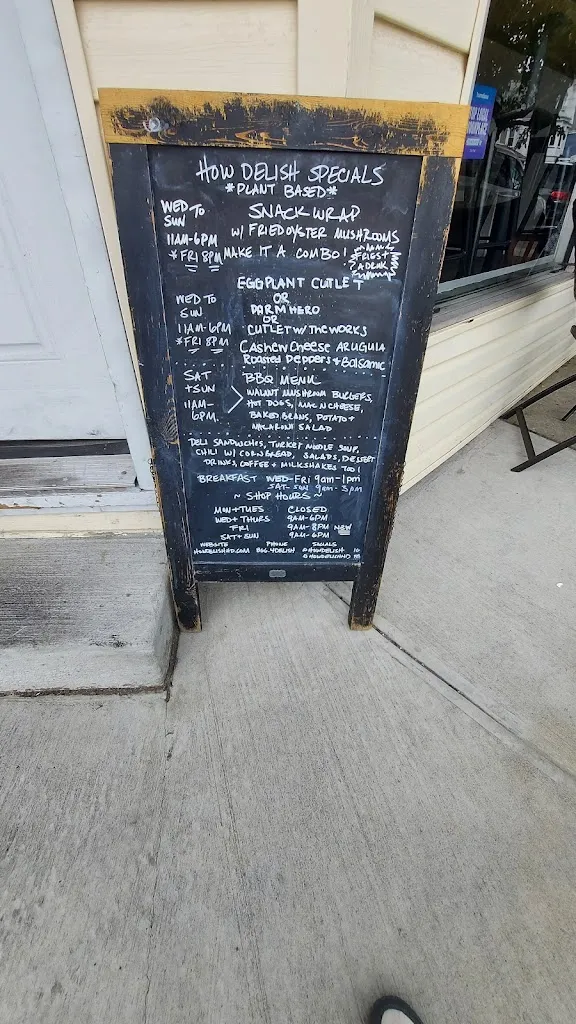 HOW DELISH SPECIALS
*PLANT BASED*
WED TO SUN
11AM-6PM
*FRI 8PM
SNACK WRAP
W/ FRIED OYSTER MUSHROOMS
MAKE IT A COMBO!
FRIES +
A DRINK
WED TO
SUN
11AM-6PM
*FRI 8PM
EGGPLANT CUTLET
OR
PARM HERO
OR
CUTLET W/ THE WORKS
CASHEW CHEESE ARUGULA
ROASTED PEPPERS + BALSAMIC
SAT
+SUN
11AM-
6PM
BBQ MENU
WALNUT MUSHROOM BURGERS,
HOT DOGS, MAC N CHEESE,
BAKED BEANS, POTATO +
MACARONI SALAD
DELI SANDWICHES, TURKEY NOODLE SOUP,
CHILI W/ CORNBREAD, SALADS, DESSERT
DRINKS, COFFEE + MILKSHAKES TOO!
BREAKFAST WED-FRI 9am-1pm
SAT-SUN 9am-3pm
~ SHOP HOURS ~
MON+TUES CLOSED
WED+THURS 9AM-6PM
FRI 9AM-8PM NEW
SAT+SUN 9AM-6PM
WEBSITE PHONE SOCIALS